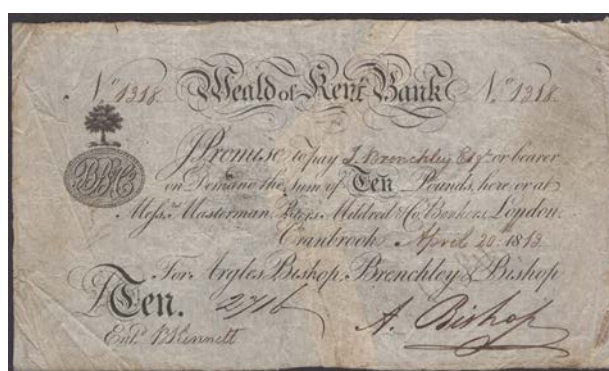 No 1318. Weald of Kent Bank No 1318.
I Promise to pay J. Brenchley Esqr. or bearer
on Demand the Sum of Ten Pounds, here or at
Messrs. Masterman, Peters, Mildred & Co. Bankers, London.
Cranbrook April 20 1813
For Argles Bishop, Brenchley & Bishop
£Ten. 2716 A. Bishop
Entd.